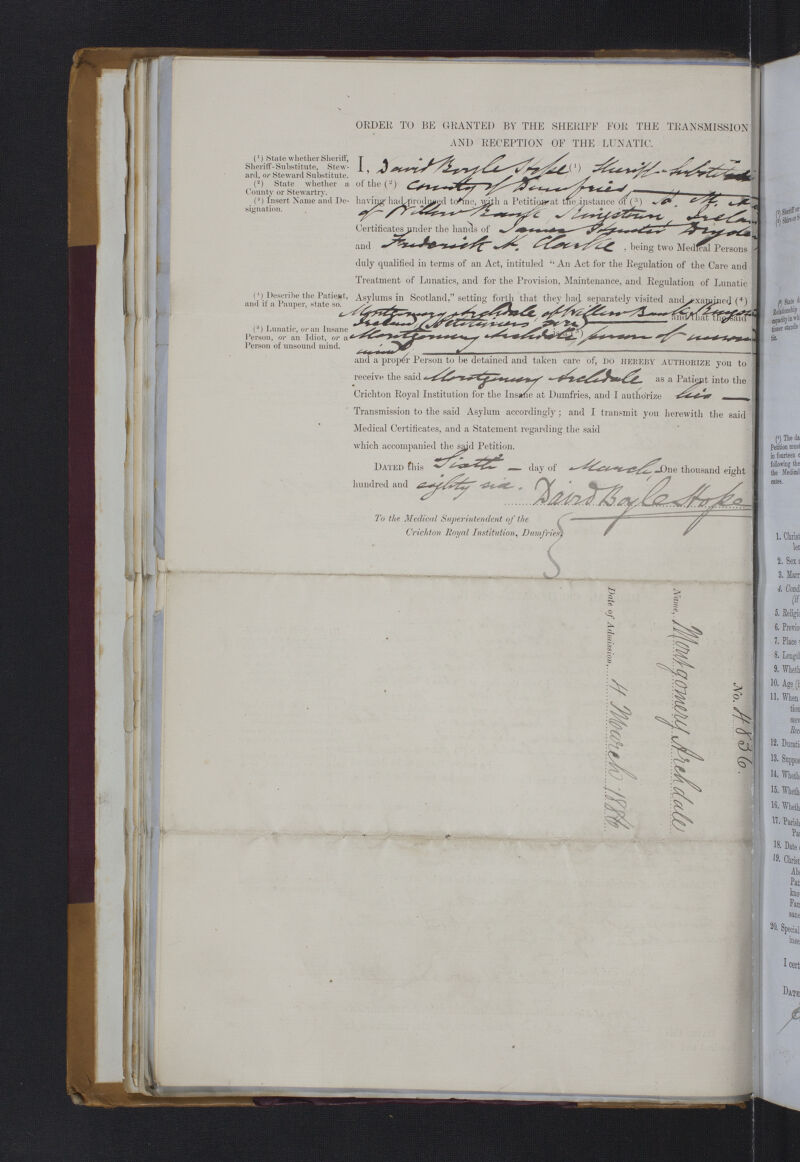 ORDER TO BE GRANTED BY THE SHERIFF FOR THE TRANSMISSION
AND RECEPTION OF THE LUNATIC.
(¹) State whether Sheriff,
Sheriff-Substitute, Stew-
ard, or Steward Substitute.
(²) State whether a
County or Stewartry.
(³) Insert Name and De-
signation.
(⁴) Describe the Patient,
and if a Pauper, state so.
(⁵) Lunatic, or an Insane
Person, or an Idiot, or a
Person of unsound mind.
I, David Boyle Hope (¹) Sheriff-Substitute
of the (²) County of Dumfries
having had produced to me, with a Petition at the instance of (³)
of Willow Bank Kingstown, Ireland
Certificates under the hands of James
and Frederick A. Clarke, being two Medical Persons
duly qualified in terms of an Act, intituled "An Act for the Regulation of the Care and
Treatment of Lunatics, and for the Provision, Maintenance, and Regulation of Lunatic
Asylums in Scotland," setting forth that they had separately visited and examined (⁴)
Montgomery Archdale of Willow Bank, Kingstown
Ireland and that the said
Montgomery Archdale person of unsound
mind
and a proper Person to be detained and taken care of, DO HEREBY AUTHORIZE you to
receive the said Montgomery Archdale as a Patient into the
Crichton Royal Institution for the Insane at Dumfries, and I authorize his
Transmission to the said Asylum accordingly; and I transmit you herewith the said
Medical Certificates, and a Statement regarding the said
which accompanied the said Petition.
DATED this Sixth day of March One thousand eight
hundred and eighty six. David Boyle Hope
To the Medical Superintendent of the
Crichton Royal Institution, Dumfries.
No. 4836.
Name, Montgomery Archdale
Date of Admission, 4 March 1886
1. Christ
2. Sex
3. Marr
4. Cond
(if
5. Religi
6. Previo
7. Place
8. Length
9. Wheth
10. Age (i
11. When
12. Durati
13. Suppos
14. Wheth
15. Wheth
16. Wheth
17. Parish
18. Date
19. Christ
20. Special
I cert
DATE